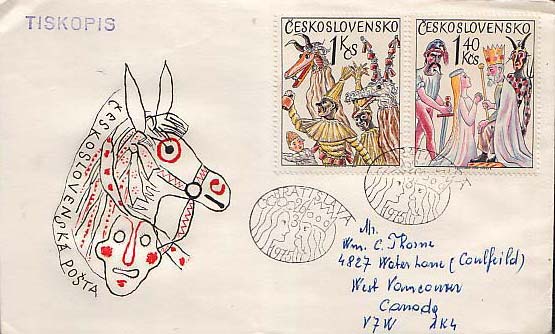 TISKOPIS
ČESKOSLOVENSKO
1 Kčs
ČESKOSLOVENSKO
1 40 Kčs
ČESKOSLOVENSKÁ POŠTA
BRATISLAVA
1975
1975
Mr.
Wm. C. Thorne
4827 Water Lane (Caulfeild)
West Vancouver
Canada
V7W 1K4